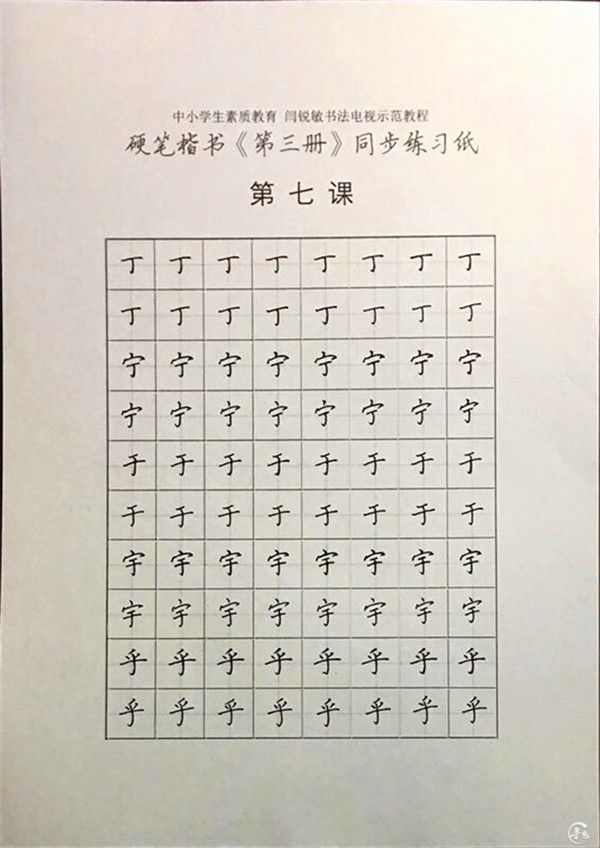 中小学生素质教育 闫锐敏书法电视示范教程
硬笔楷书《第三册》同步练习纸
第七课
丁丁丁丁丁丁丁丁
丁丁丁丁丁丁丁丁
宁宁宁宁宁宁宁宁
宁宁宁宁宁宁宁宁
于于于于于于于于
于于于于于于于于
宇宇宇宇宇宇宇宇
宇宇宇宇宇宇宇宇
乎乎乎乎乎乎乎乎
乎乎乎乎乎乎乎乎